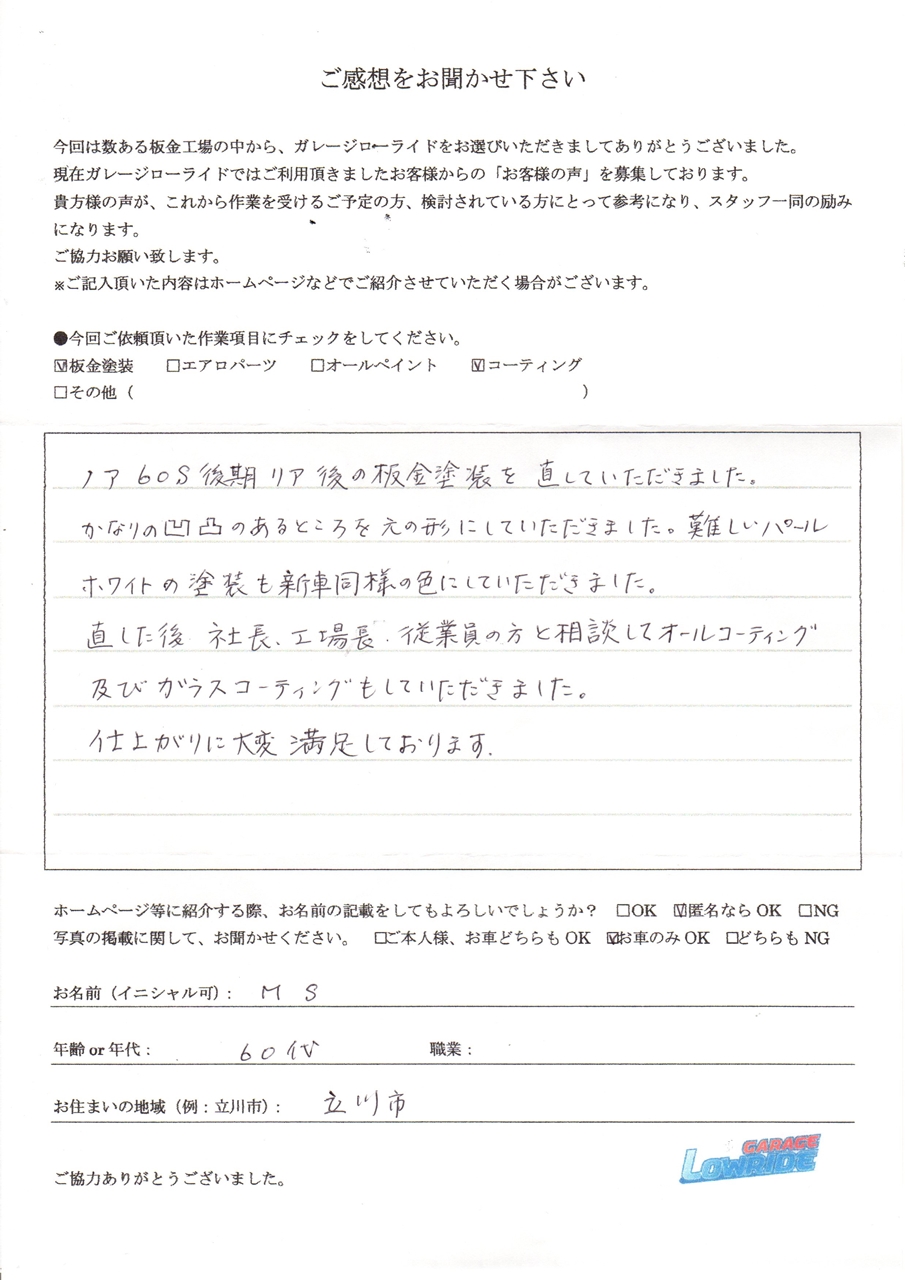 ご感想をお聞かせ下さい
今回は数ある板金工場の中から、ガレージローライドをお選びいただきましてありがとうございました。
現在ガレージローライドではご利用頂きましたお客様からの「お客様の声」を募集しております。
貴方様の声が、これから作業を受けるご予定の方、検討されている方にとって参考になり、スタッフ一同の励み
になります。
ご協力お願い致します。
※ご記入頂いた内容はホームページなどでご紹介させていただく場合がございます。
●今回ご依頼頂いた作業項目にチェックをしてください。
☑板金塗装 □エアロパーツ □オールペイント ☑コーティング
□その他（ ）
ノア60S後期リア後の板金塗装を直していただきました。
かなりの凹凸のあるところを元の形にしていただきました。難しいパール
ホワイトの塗装も新車同様の色にしていただきました。
直した後 社長、工場長、従業員の方と相談してオールコーティング
及びガラスコーティングもしていただきました。
仕上がりに大変満足しております.
ホームページ等に紹介する際、お名前の記載をしてもよろしいでしょうか？ □OK ☑匿名なら OK □NG
写真の掲載に関して、お聞かせください。 □ご本人様、お車どちらも OK ☑お車のみ OK □どちらも NG
お名前（イニシャル可）： M S
年齢 or 年代： 60代 職業：
お住まいの地域（例：立川市）： 立川市
GARAGE
LOWRIDE
ご協力ありがとうございました。